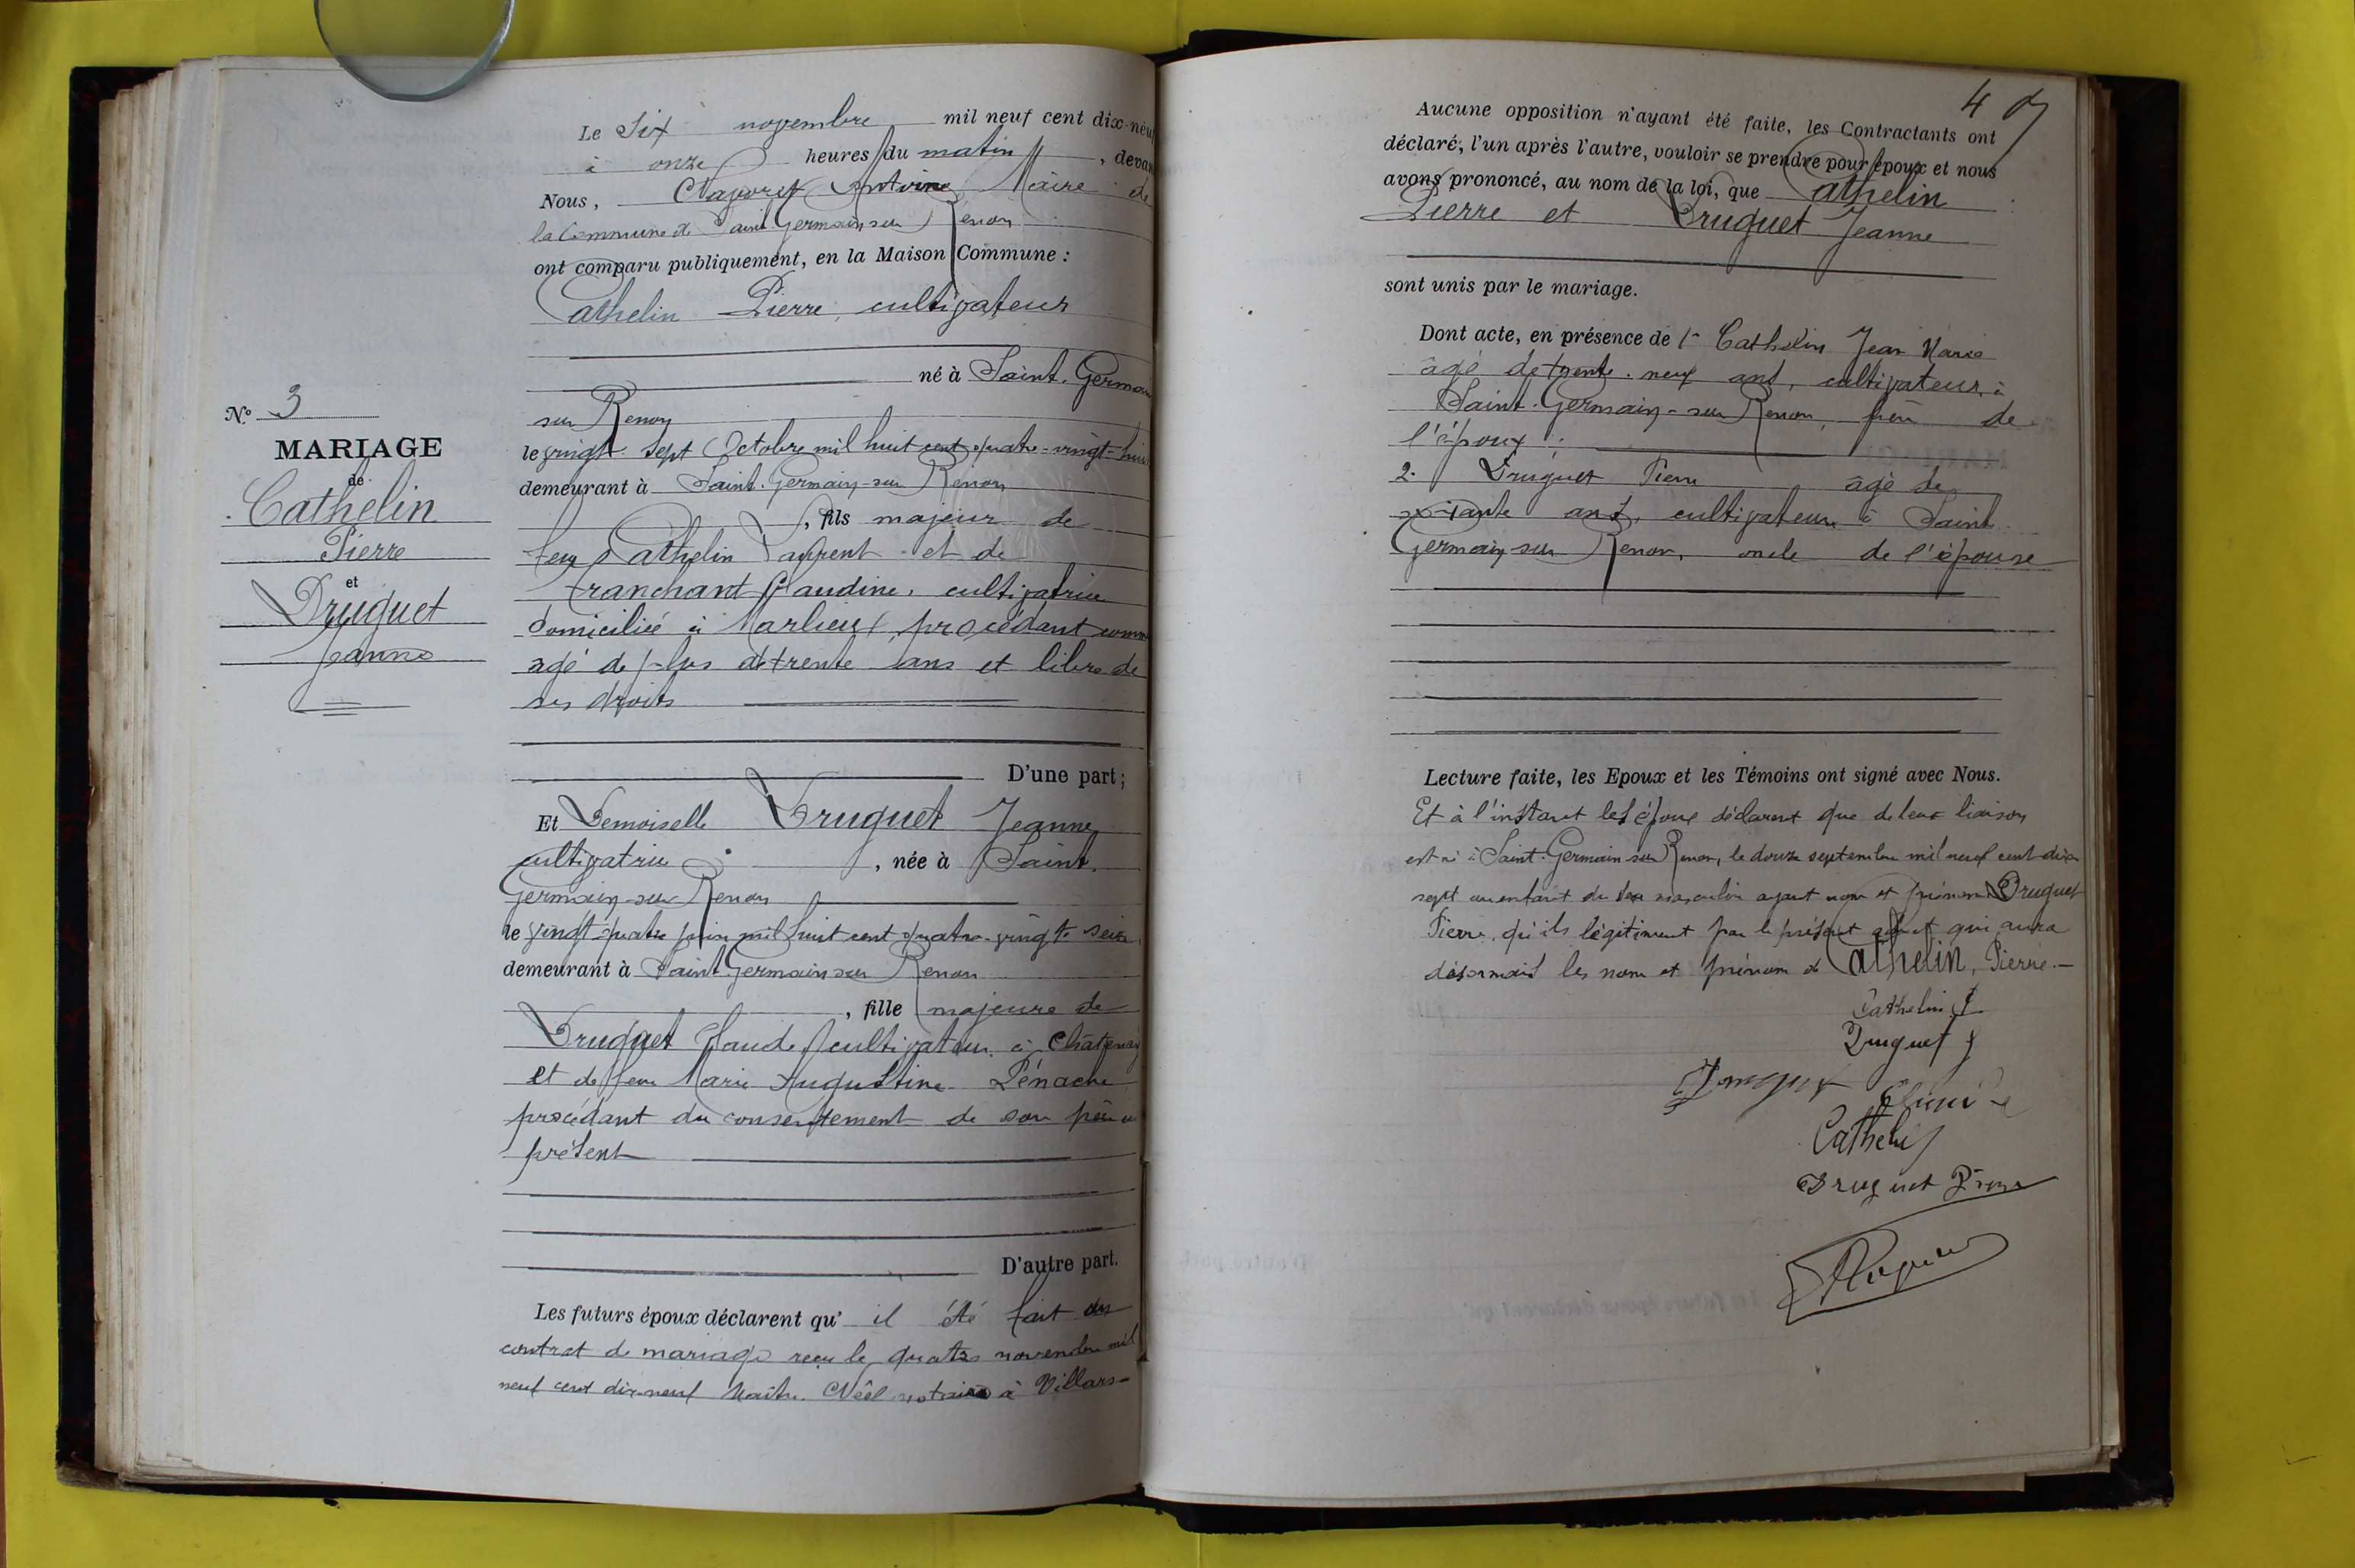 Le Six novembre mil neuf cent dix-neuf
à onze heures du matin, devan
Nous, Antoine Maire de
la Commune de Saint Germain sur Renon
ont comparu publiquement, en la Maison Commune :
Cathelin Pierre, cultivateur
né à Saint. Germain
sur Renon
le vingt-sept Octobre mil huit cent quatre-vingt-huit
demeurant à Saint. Germain-sur Renon
, fils majeur de
feu Cathelin Laurent et de
tranchant Claudine, cultivatrice
domiciliée à Marlieux, procédant comme
agé de plus de trente ans et libre de
ses droits
D'une part ;
Et Demoiselle Druguet Jeanne
cultivatrice, née à Saint.
Germain-sur Renon
le vingt quatre juin mil huit cent quatre-vingt-seize
demeurant à Saint Germain sur Renon
, fille majeure de
Druguet Claude cultivateur à Châtenay
et de feue Marie Augustine Pénache
procédant du consentement de son père
présent
D'autre part.
Les futurs époux déclarent qu'il été fait un
contrat de mariage reçu le quatre novembre mil
neuf cent dix-neuf Maître notaire à Villars-
N° 3
MARIAGE
de
Cathelin
Pierre
et
Druguet
Jeanne
4
Aucune opposition n'ayant été faite, les Contractants ont
déclaré, l'un après l'autre, vouloir se prendre pour époux et nous
avons prononcé, au nom de la loi, que Cathelin
Pierre et Druguet Jeanne
sont unis par le mariage.
Dont acte, en présence de 1° Cathelin Jean Marie
âgé de trente-neuf ans, cultivateur à
Saint-Germain-sur Renon, frère de
l'époux ;
2° Druguet Pierre âgé de
soixante ans, cultivateur à Saint
Germain-sur Renon, oncle de l'épouse
Lecture faite, les Epoux et les Témoins ont signé avec Nous.
Et à l'instant les époux déclarent que de leur liaison
est né à Saint-Germain sur Renon, le douze septembre mil neuf cent dix
sept un enfant du sexe masculin ayant nom et prénom Druguet
Pierre, qu'ils légitiment par le présent acte et qui aura
désormais les nom et prénom de Cathelin, Pierre.-
Cathelin P
Druguet J
Cathelin
Druguet Pierre